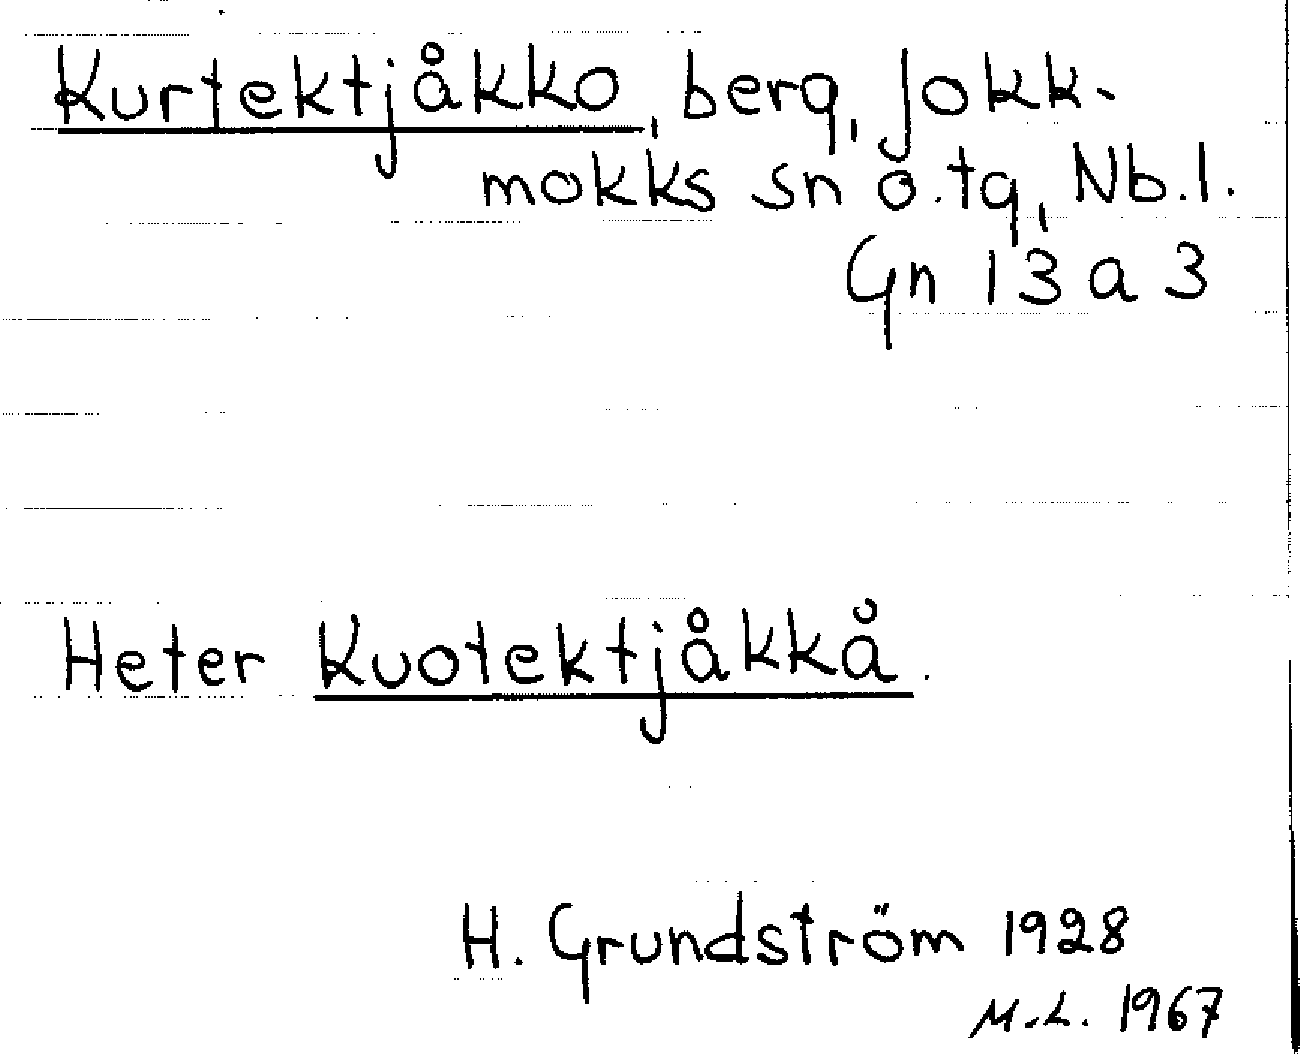 Kurtektjåkko, berg, Jokk-
mokks sn o. tg, Nb. l.
Gn 13 a 3
Heter Kuotektjåkkå.
H. Grundström 1928
M.L. 1967